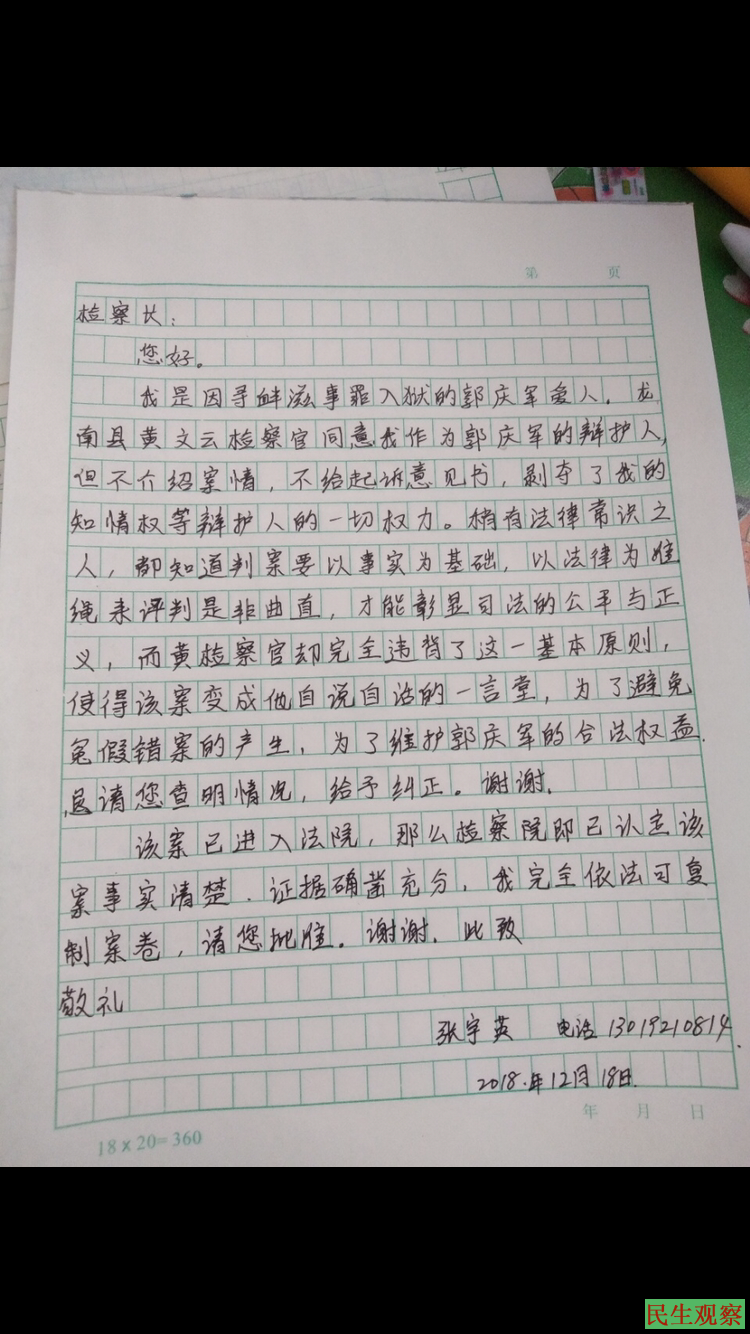 第 页
检察长:
您好。
我是因寻衅滋事罪入狱的郭庆军爱人. 龙
南县黄文云检察官同意我作为郭庆军的辩护人,
但不介绍案情, 不给起诉意见书, 剥夺了我的
知情权等辩护人的一切权力。稍有法律常识之
人, 都知道判案要以事实为基础, 以法律为准
绳来评判是非曲直, 才能彰显司法的公平与正
义, 而黄检察官却完全违背了这一基本原则,
使得该案变成他自说自话的一言堂, 为了避免
冤假错案的产生, 为了维护郭庆军的合法权益.
恳请您查明情况, 给予纠正。谢谢.
该案已进入法院, 那么检察院即已认定该
案事实清楚. 证据确凿充分, 我完全依法可复
制案卷, 请您批准。谢谢. 此致
敬礼
张宇英 电话 13019210814.
2018.年12月18日.
年 月 日
18×20=360
民生观察